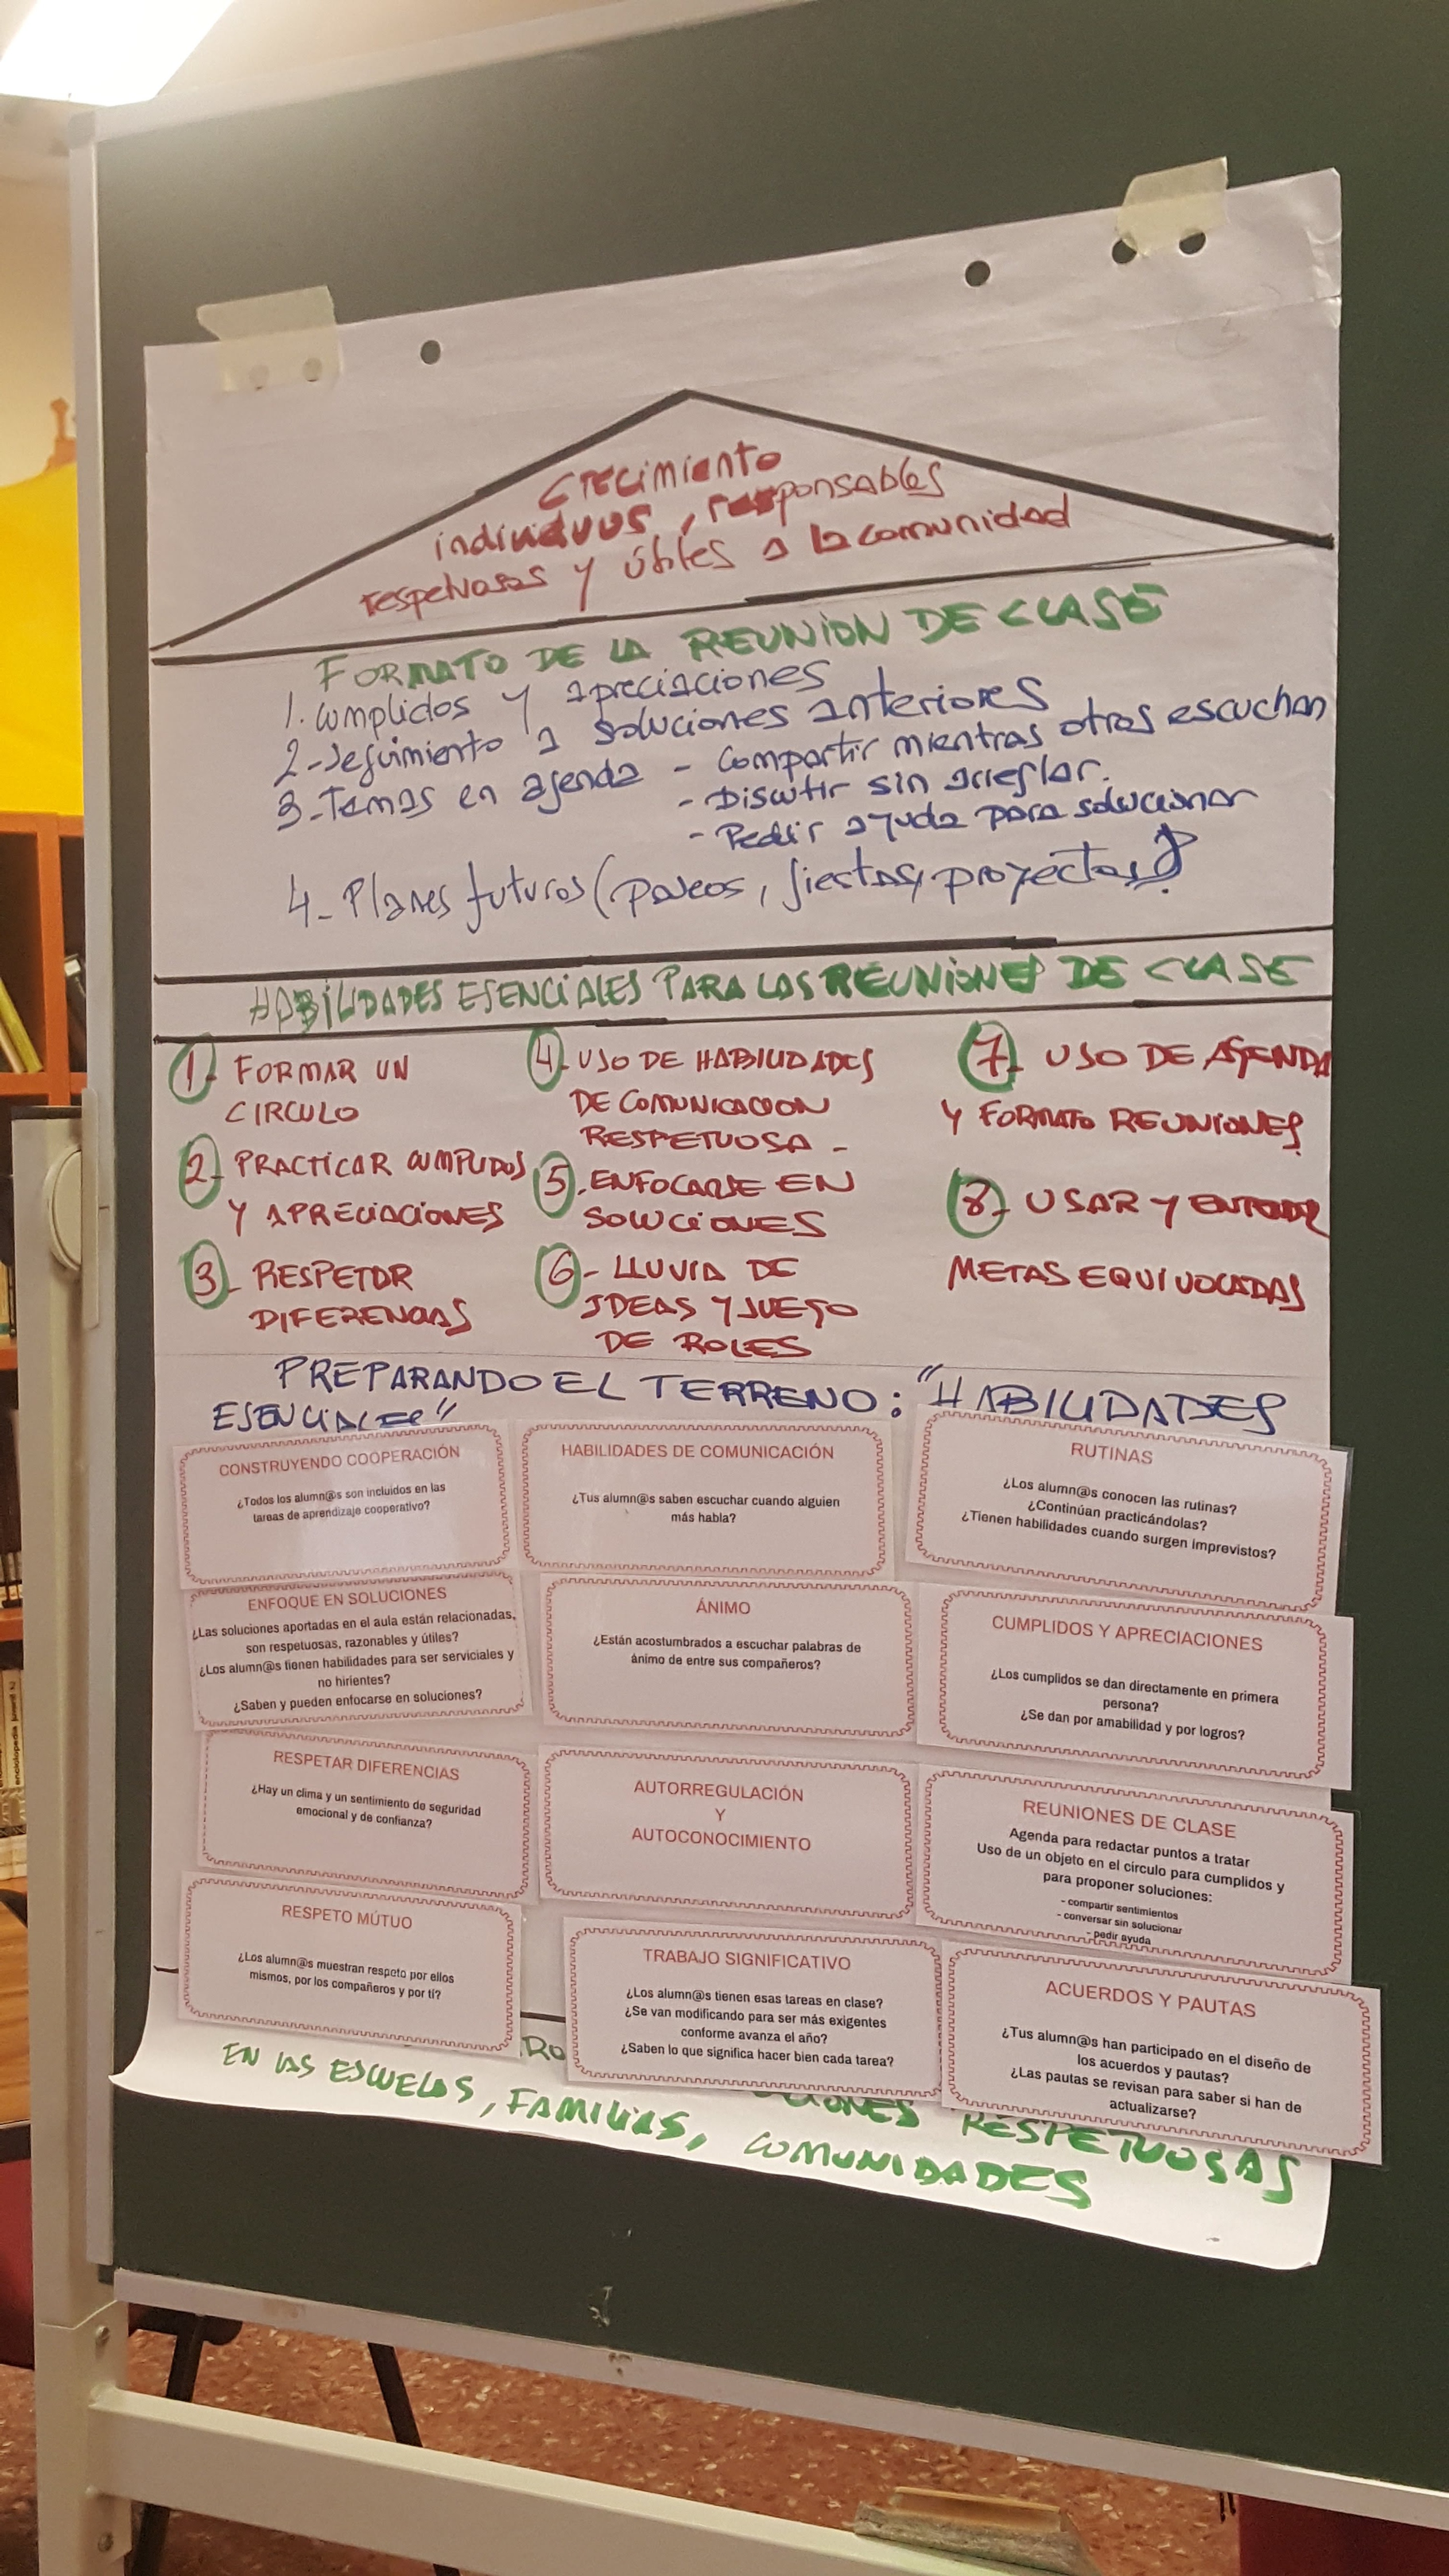 Crecimiento
individuos, responsables
respetuosos y útiles a la comunidad
FORMATO DE LA REUNION DE CLASE
1. cumplidos y apreciaciones
2- Seguimiento a soluciones anteriores
3- Temas en agenda - Compartir mientras otros escuchan
- Discutir sin arreglar.
- Pedir ayuda para solucionar
4- Planes futuros (paseos, fiestas, proyectos)
HABILIDADES ESENCIALES PARA LAS REUNIONES DE CLASE
1- FORMAR UN
CIRCULO
2- PRACTICAR CUMPLIDOS
Y APRECIACIONES
3- RESPETAR
DIFERENCIAS
4- USO DE HABILIDADES
DE COMUNICACION
RESPETUOSA -
5. ENFOCARSE EN
SOLUCIONES
6- LLUVIA DE
IDEAS Y JUEGO
DE ROLES
7- USO DE AGENDA
Y FORMATO REUNIONES
8- USAR Y ENTENDER
METAS EQUIVOCADAS
PREPARANDO EL TERRENO: "HABILIDADES
ESENCIALES"
CONSTRUYENDO COOPERACIÓN
¿Todos los alumn@s son incluidos en las
tareas de aprendizaje cooperativo?
HABILIDADES DE COMUNICACIÓN
¿Tus alumn@s saben escuchar cuando alguien
más habla?
RUTINAS
¿Los alumn@s conocen las rutinas?
¿Continúan practicándolas?
¿Tienen habilidades cuando surgen imprevistos?
ENFOQUE EN SOLUCIONES
¿Las soluciones aportadas en el aula están relacionadas,
son respetuosas, razonables y útiles?
¿Los alumn@s tienen habilidades para ser serviciales y
no hirientes?
¿Saben y pueden enfocarse en soluciones?
ÁNIMO
¿Están acostumbrados a escuchar palabras de
ánimo de entre sus compañeros?
CUMPLIDOS Y APRECIACIONES
¿Los cumplidos se dan directamente en primera
persona?
¿Se dan por amabilidad y por logros?
RESPETAR DIFERENCIAS
¿Hay un clima y un sentimiento de seguridad
emocional y de confianza?
AUTORREGULACIÓN
Y
AUTOCONOCIMIENTO
REUNIONES DE CLASE
Agenda para redactar puntos a tratar
Uso de un objeto en el círculo para cumplidos y
para proponer soluciones:
- compartir sentimientos
- conversar sin solucionar
- pedir ayuda
RESPETO MÚTUO
¿Los alumn@s muestran respeto por ellos
mismos, por los compañeros y por tí?
TRABAJO SIGNIFICATIVO
¿Los alumn@s tienen esas tareas en clase?
¿Se van modificando para ser más exigentes
conforme avanza el año?
¿Saben lo que significa hacer bien cada tarea?
ACUERDOS Y PAUTAS
¿Tus alumn@s han participado en el diseño de
los acuerdos y pautas?
¿Las pautas se revisan para saber si han de
actualizarse?
RESPETUOSAS
EN LAS ESCUELAS, FAMILIAS, COMUNIDADES